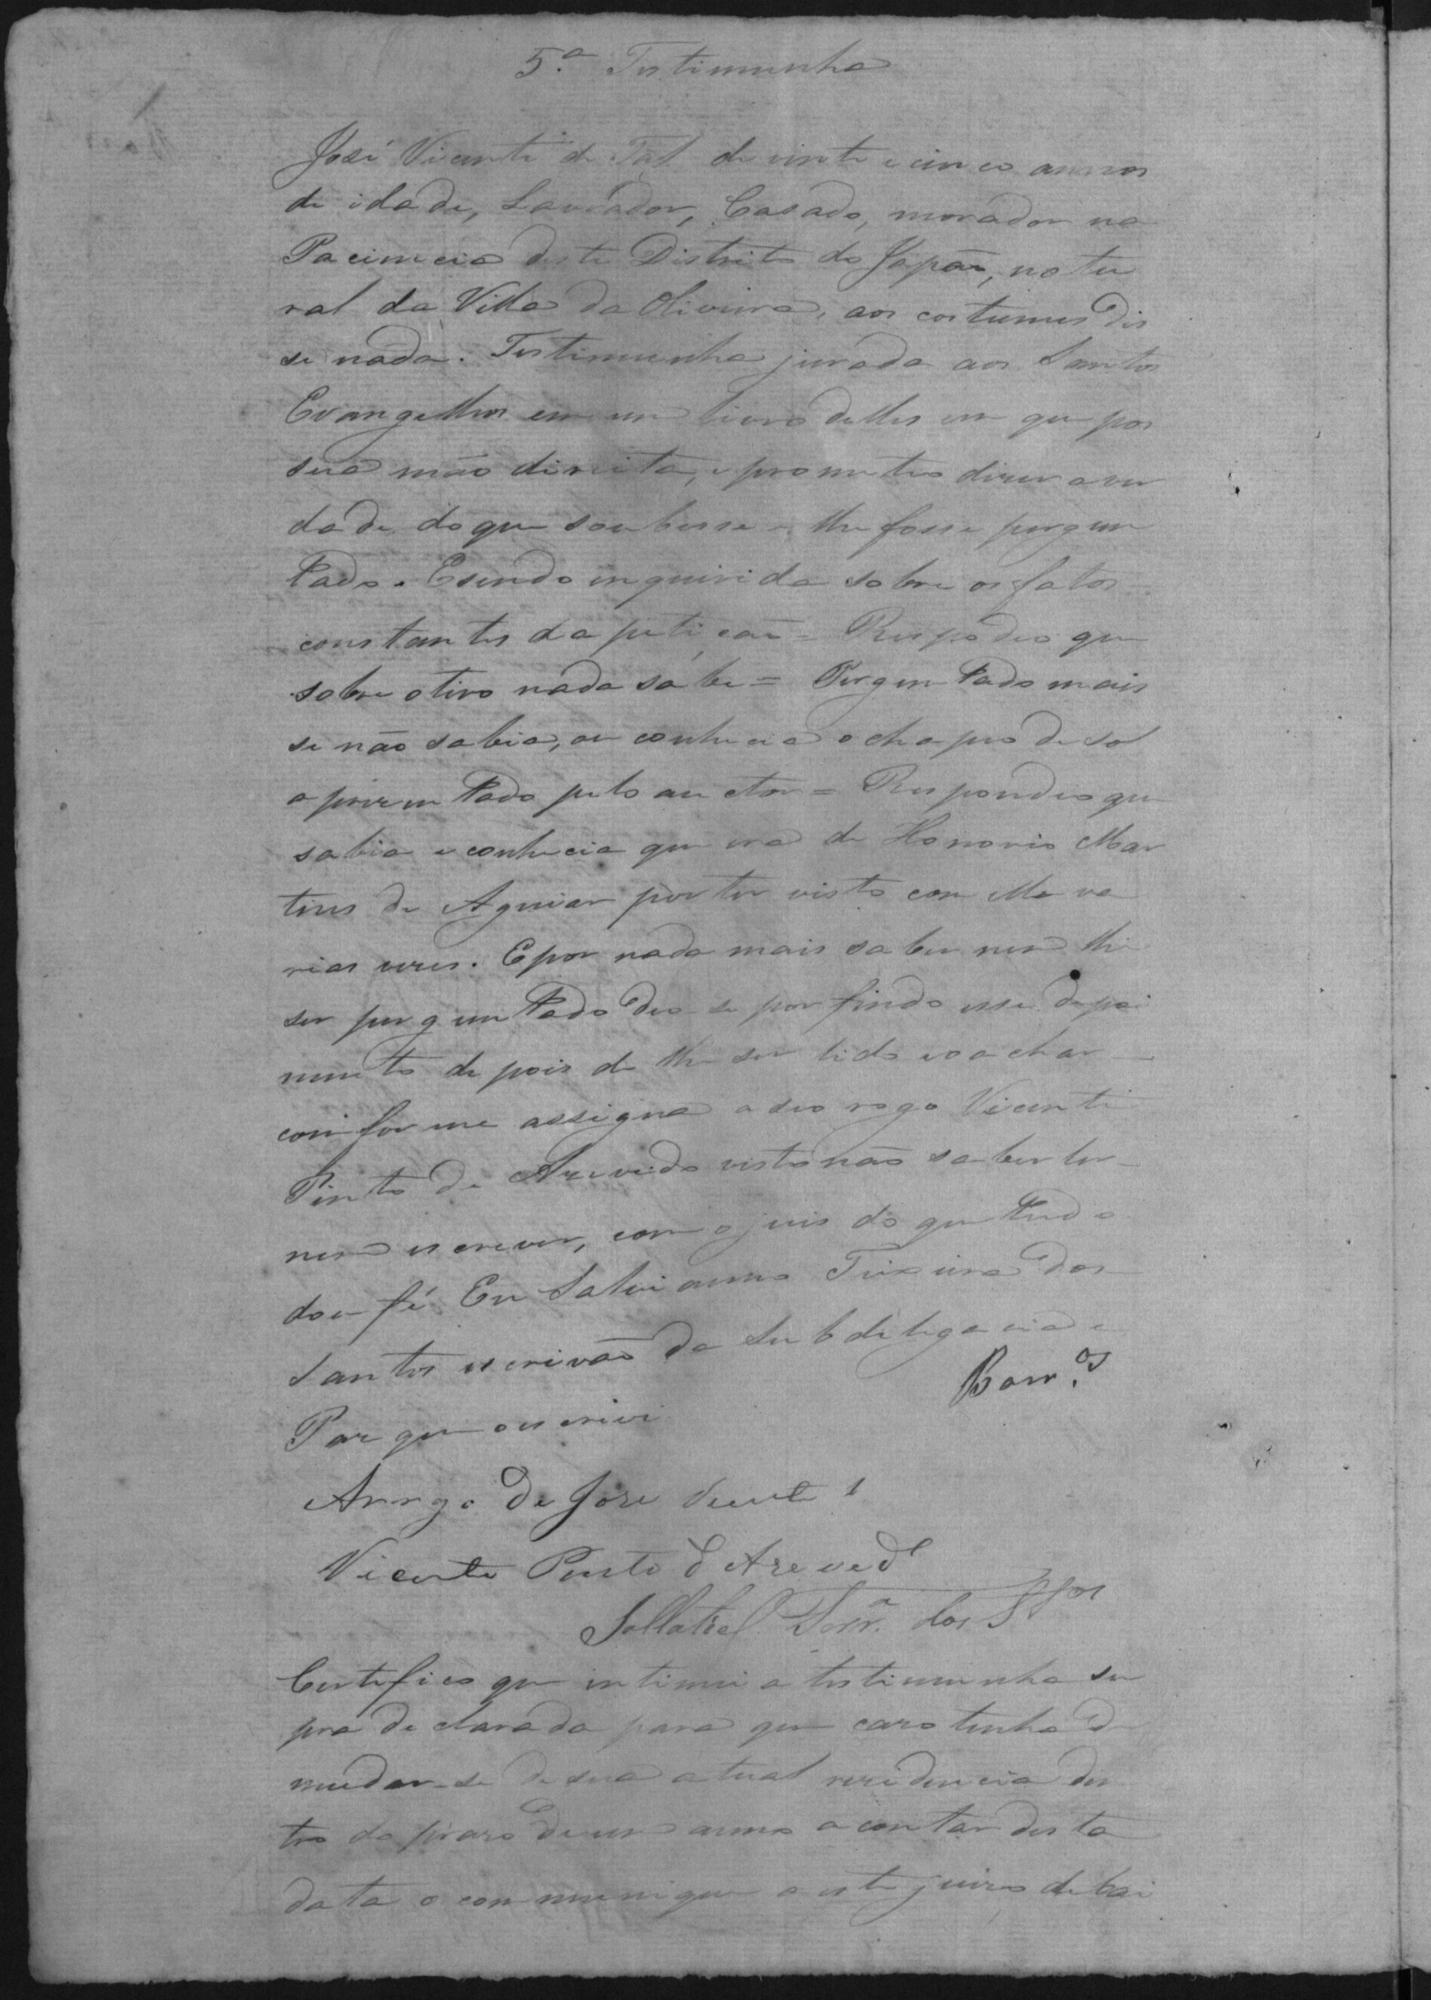 5.ª Testimunha
José Vicente de Tal de vinte e cinco annos
de idade, Lavrador, Casado, morador na
Paciencia deste Distrito do Japão, natu
ral da Villa da Oliveira, aos costumes dis
se nada. Testimunha jurada aos Santos
Evangelhos em um livro delles em que pos
sua mão direita, e prometeo diser a ver
dade do que soubesse e lhe fosse pergun
tado. E sendo inquirida sobre os fatos
constantes da petição = Respodeo que
sobre o tiro nada sabe = Perguntado mais
se não sabia, ou conhecia o chapeo de sol
aprezentado pelo auctor = Respondeo que
sabia e conhecia que era de Honorio Mar
tins de Aguiar por ter visto com elle va
rias veses. E por nada mais saber nem lhe
ser perguntado deo-se por findo esse depoi
mento depois de lhe ser lido e o achar
conforme assigna a seo rogo Vicente
Pinto de Azevedo visto não saber ler
nem escrever, com o juis do que tudo
dou fé. Eu Salvianno Teixeira dos
Santos escrivão da Subdelegacia e
Barr.os
Paz que o escrivi
Arrogo De Jose Vicente
Vicente Pinto d Azeved
dos
Certifico que intimei a testimunha su
pra declarada para que caso tenha de
mudar-se de sua atual rezidencia den
tro do praso de um anno a contar desta
data o communique a este juizo debai